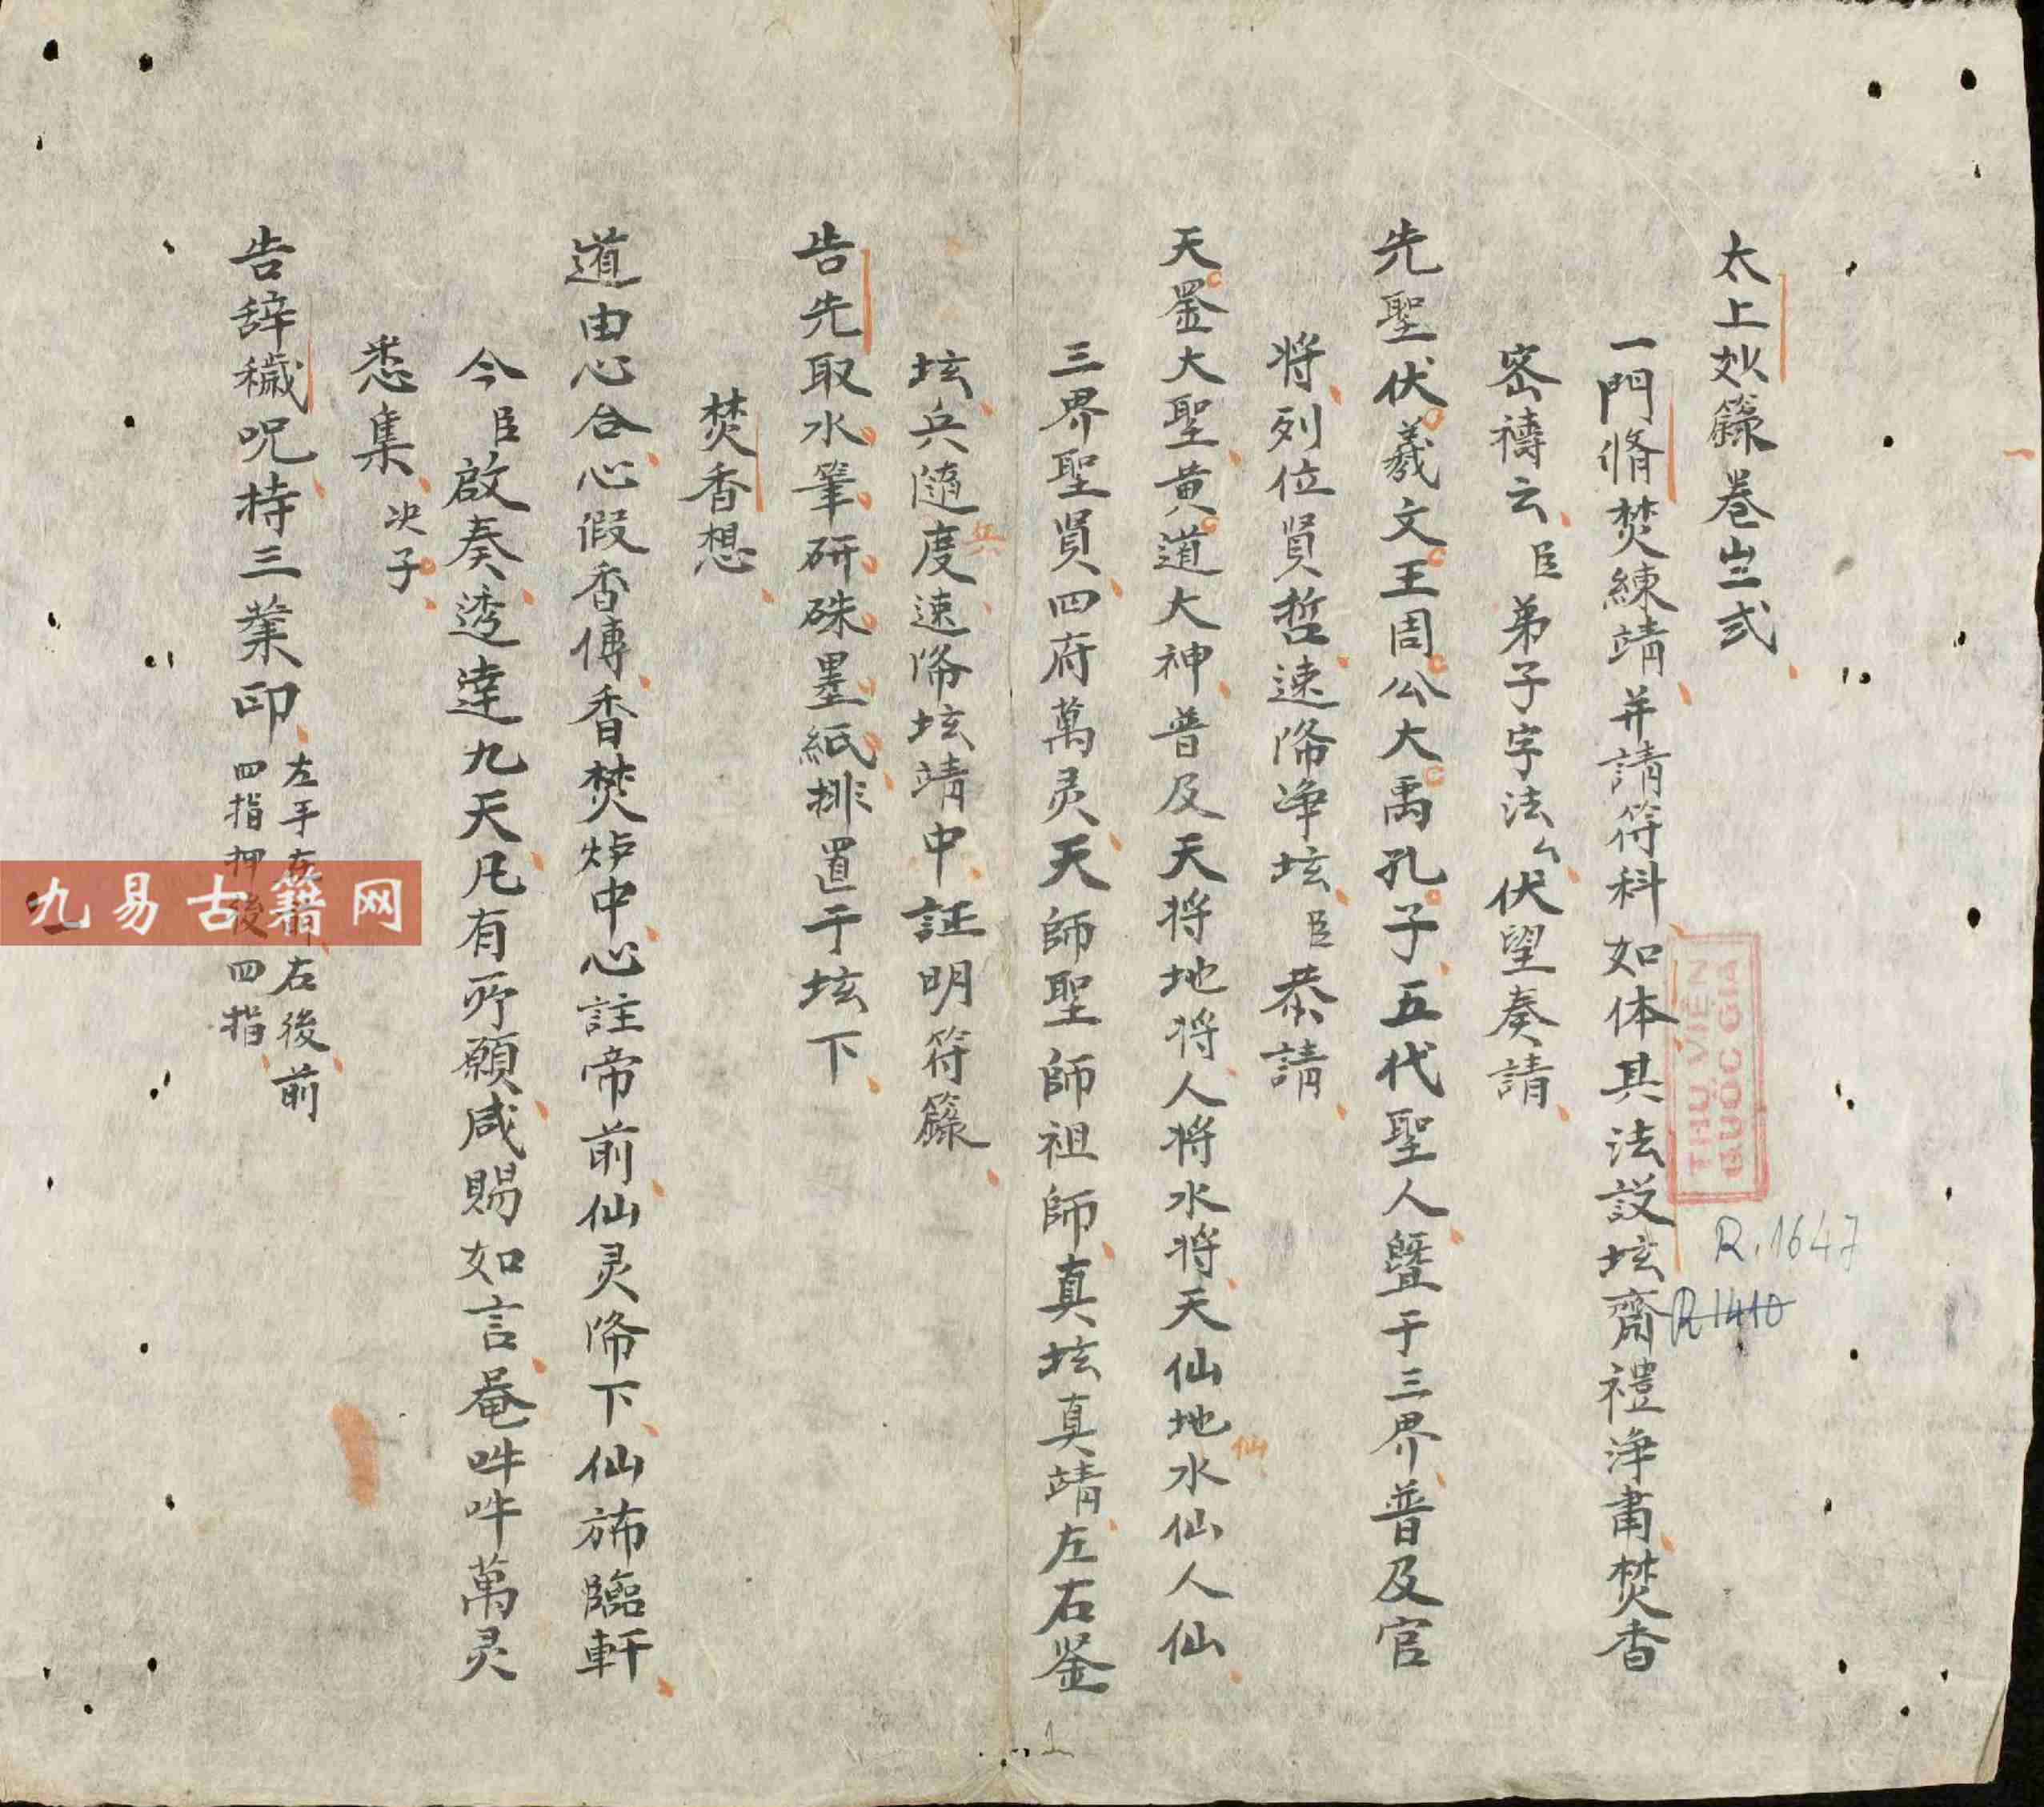 太上妙籙卷𠀧弍
一門脩焚練靖并請符科如体其法設坛齋禮淨肅焚香
密禱云臣弟子字法厶伏望奏請
先聖伏羲文王周公大禹孔子五代聖人暨于三界普及官
将列位賢哲速降净坛臣恭請
天罡大聖黄道大神普及天将地将人将水将天仙地水仙人仙
仙
三界聖賢四府萬灵天師聖師祖師真坛真靖左右鉴
坛兵隨度速降坛靖中証明符籙
兵
告先取水筆研硃墨紙排置于坛下
焚香想
道由心合心假香傳香焚炉中心註帝前仙灵降下仙斾臨軒
今臣啟奏透達九天凡有所願咸賜如言唵吽吽萬灵
悉集决子
告辞穢呪持三業印
左手在前右後前
四指押後四指
THƯ VIỆN
QUỐC GIA
R.1647
R1410
九易古籍网
1